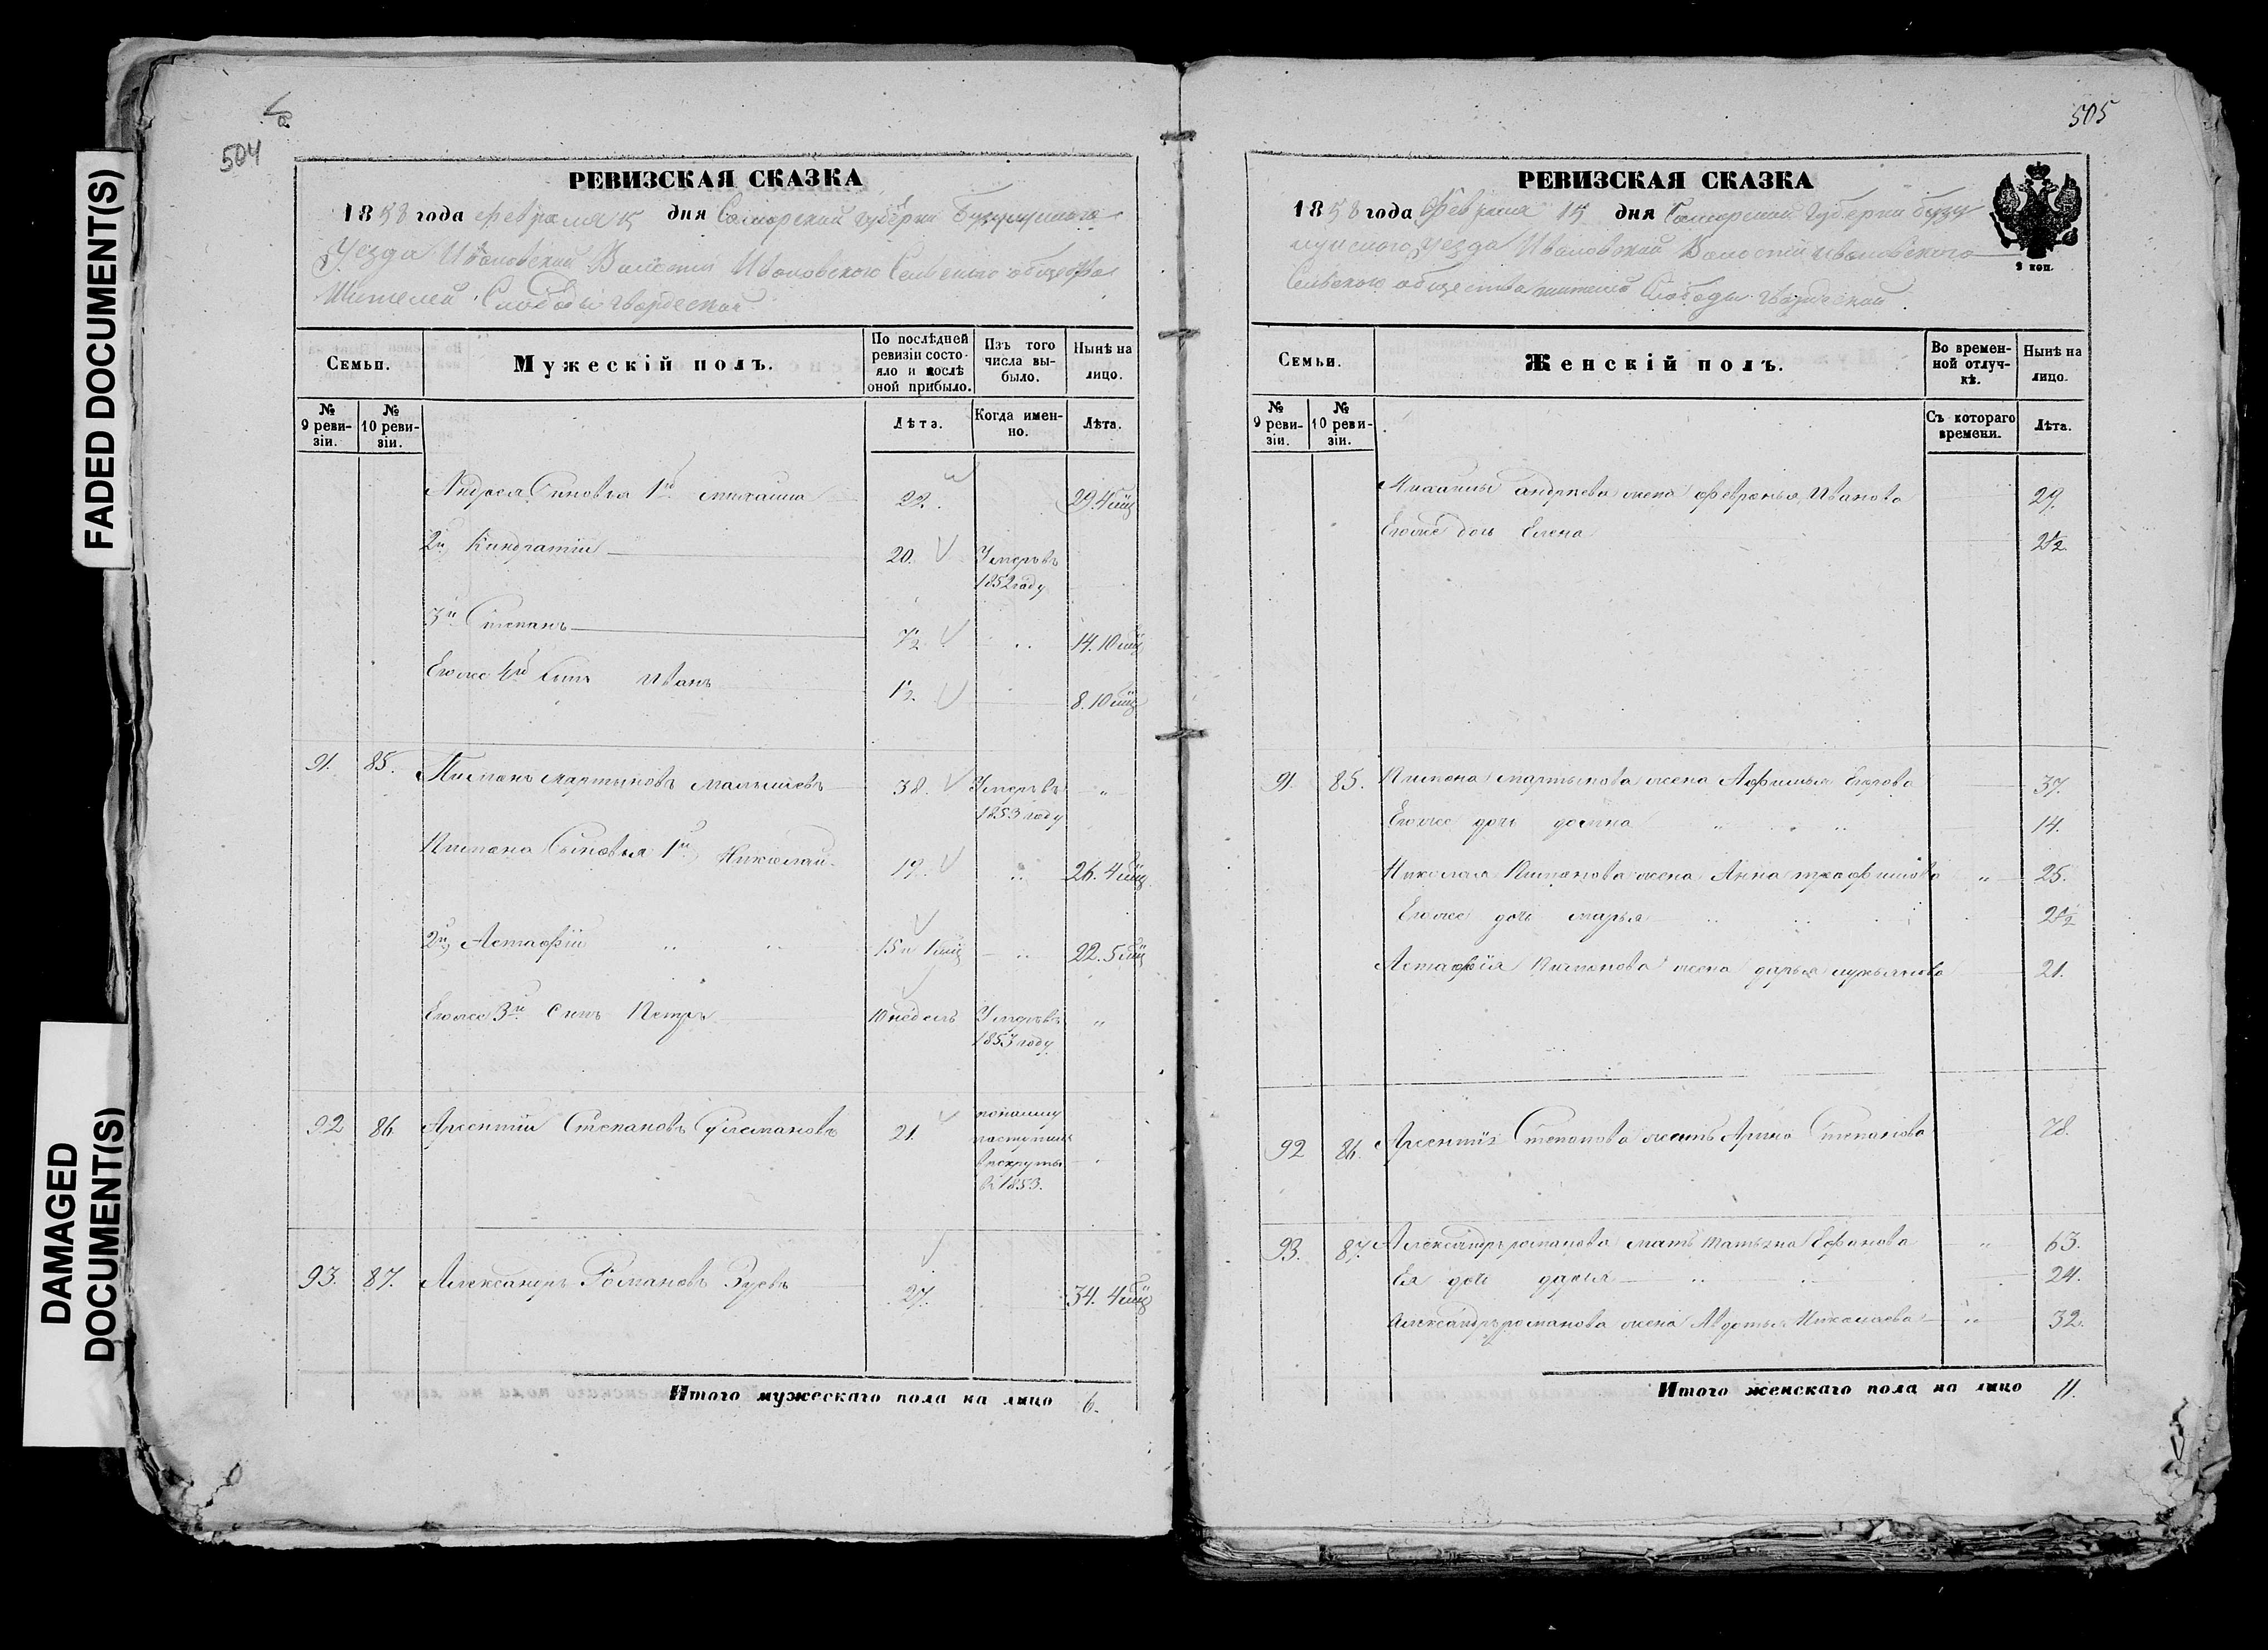 FADED DOCUMENT(S)
DAMAGED
DOCUMENT(S)
504
РЕВИЗСКАЯ СКАЗКА
1858 года февраля 15 дня Самарской губернии Бузулукскаго
Уезда Ивановской Волости Ивановского Сельского общества
Жителей Слободы Гвардейской
Семьи.
Мужескій полъ.
По послѣдней ревизіи состояло и послѣ оной прибыло.
Изъ того числа выбыло.
Нынѣ на лицо.
№ 9 ревизіи.
№ 10 ревизіи.
Лѣта.
Когда именно.
Лѣта.
Андрея Сыновья 1й михаила 22. 29. 4 мѣц
2й Кандратий 20. Умеръ въ 1852 году
3й Степанъ 7½ 14. 10 мѣц
Егоже 4й Сынъ Иванъ 1½ 8. 10 мѣц
91. 85. Пимонъ мартыновъ малышевъ 38. Умеръ въ 1853 году "
Пимона Сыновья 1й Николай 19. 26. 4 мѣц
2й Астафій 15 и 1 мѣц 22. 5 мѣц
Егоже 3й Сынъ Петръ 10 недель Умеръ въ 1853 году "
92 86. Арсентий Степановъ 21. в рекруты в 1853.
93. 87. Александръ Романовъ Зуевъ 27. 34. 4 мѣц
Итого мужескаго пола на лицо 6.
505
РЕВИЗСКАЯ СКАЗКА
1858 года Февраля 15 дня Самарской Губернии бузу
лукского уезда Ивановской Волости ивановского
Сельского общества жителей Слободы Гвардейской
3 коп.
Семьи.
Женскій полъ.
Во временной отлучкѣ.
Нынѣ на лицо.
№ 9 ревизіи.
№ 10 ревизіи.
Съ котораго времени.
Лѣта.
Михаилы андреева жена февронья Иванова 29.
Егоже дочь Елена 2½
91. 85. Пимона мартынова жена Афимья Егорова 37.
Егоже дочь домна 14.
Николая Пимонова жена Анна трафимова " 25.
Егоже дочь марья 2½
Астафія Пимонова жена дарья лукьянова 21.
92 86. Арсентия Степанова мать Арина Степанова 78.
93. 87. Александръ романова мать татьяна Ефанова " 63.
Ея дочь дарья 24.
Александръ романова жена Авдотья Николаева " 32.
Итого женскаго пола на лицо 11.